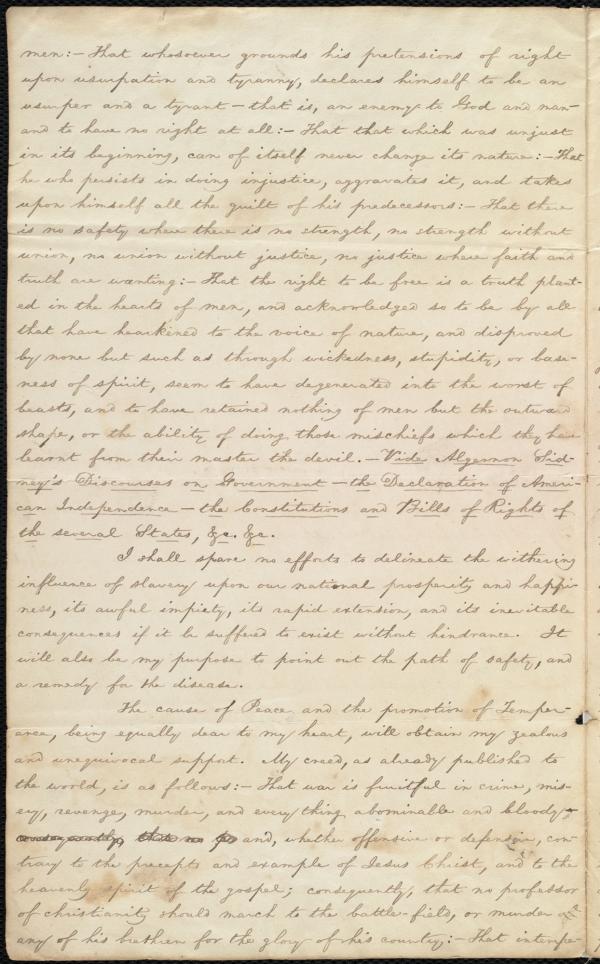 men:— That whosoever grounds his pretensions of right
upon usurpation and tyranny, declares himself to be an
usurper and a tyrant — that is, an enemy to God and man —
and to have no right at all:— That that which was unjust
in its beginning, can of itself never change its nature:— That
he who persists in doing injustice, aggravates it, and takes
upon himself all the guilt of his predecessors:— That there
is no safety where there is no strength, no strength without
union, no union without justice, no justice where faith and
truth are wanting:— That the right to be free is a truth plant-
ed in the hearts of men, and acknowledged so to be by all
that have hearkened to the voice of nature, and disproved
by none but such as through wickedness, stupidity, or base-
ness of spirit, seem to have degenerated into the worst of
beasts, and to have retained nothing of men but the outward
shape, or the ability of doing those mischiefs which they have
learnt from their master the devil. — Vide Algernon Sid-
ney's Discourses on Government — the Declaration of Ameri-
can Independence — the Constitutions and Bills of Rights of
the several States, &c. &c.
I shall spare no efforts to delineate the withering
influence of slavery upon our national prosperity and happi-
ness, its awful impiety, its rapid extension, and its inevitable
consequences if it be suffered to exist without hindrance. It
will also be my purpose to point out the path of safety, and
a remedy for the disease.
The cause of Peace and the promotion of Temper-
ance, being equally dear to my heart, will obtain my zealous
and unequivocal support. My creed, as already published to
the world, is as follows:— That war is fruitful in crime, mis-
ery, revenge, murder, and every thing abominable and bloody —
consequently, that no and, whether offensive or defensive, con-
trary to the precepts and example of Jesus Christ, and to the
heavenly spirit of the gospel; consequently, that no professor
of christianity should march to the battle-field, or murder
any of his brethren for the glory of his country:— That intempe-